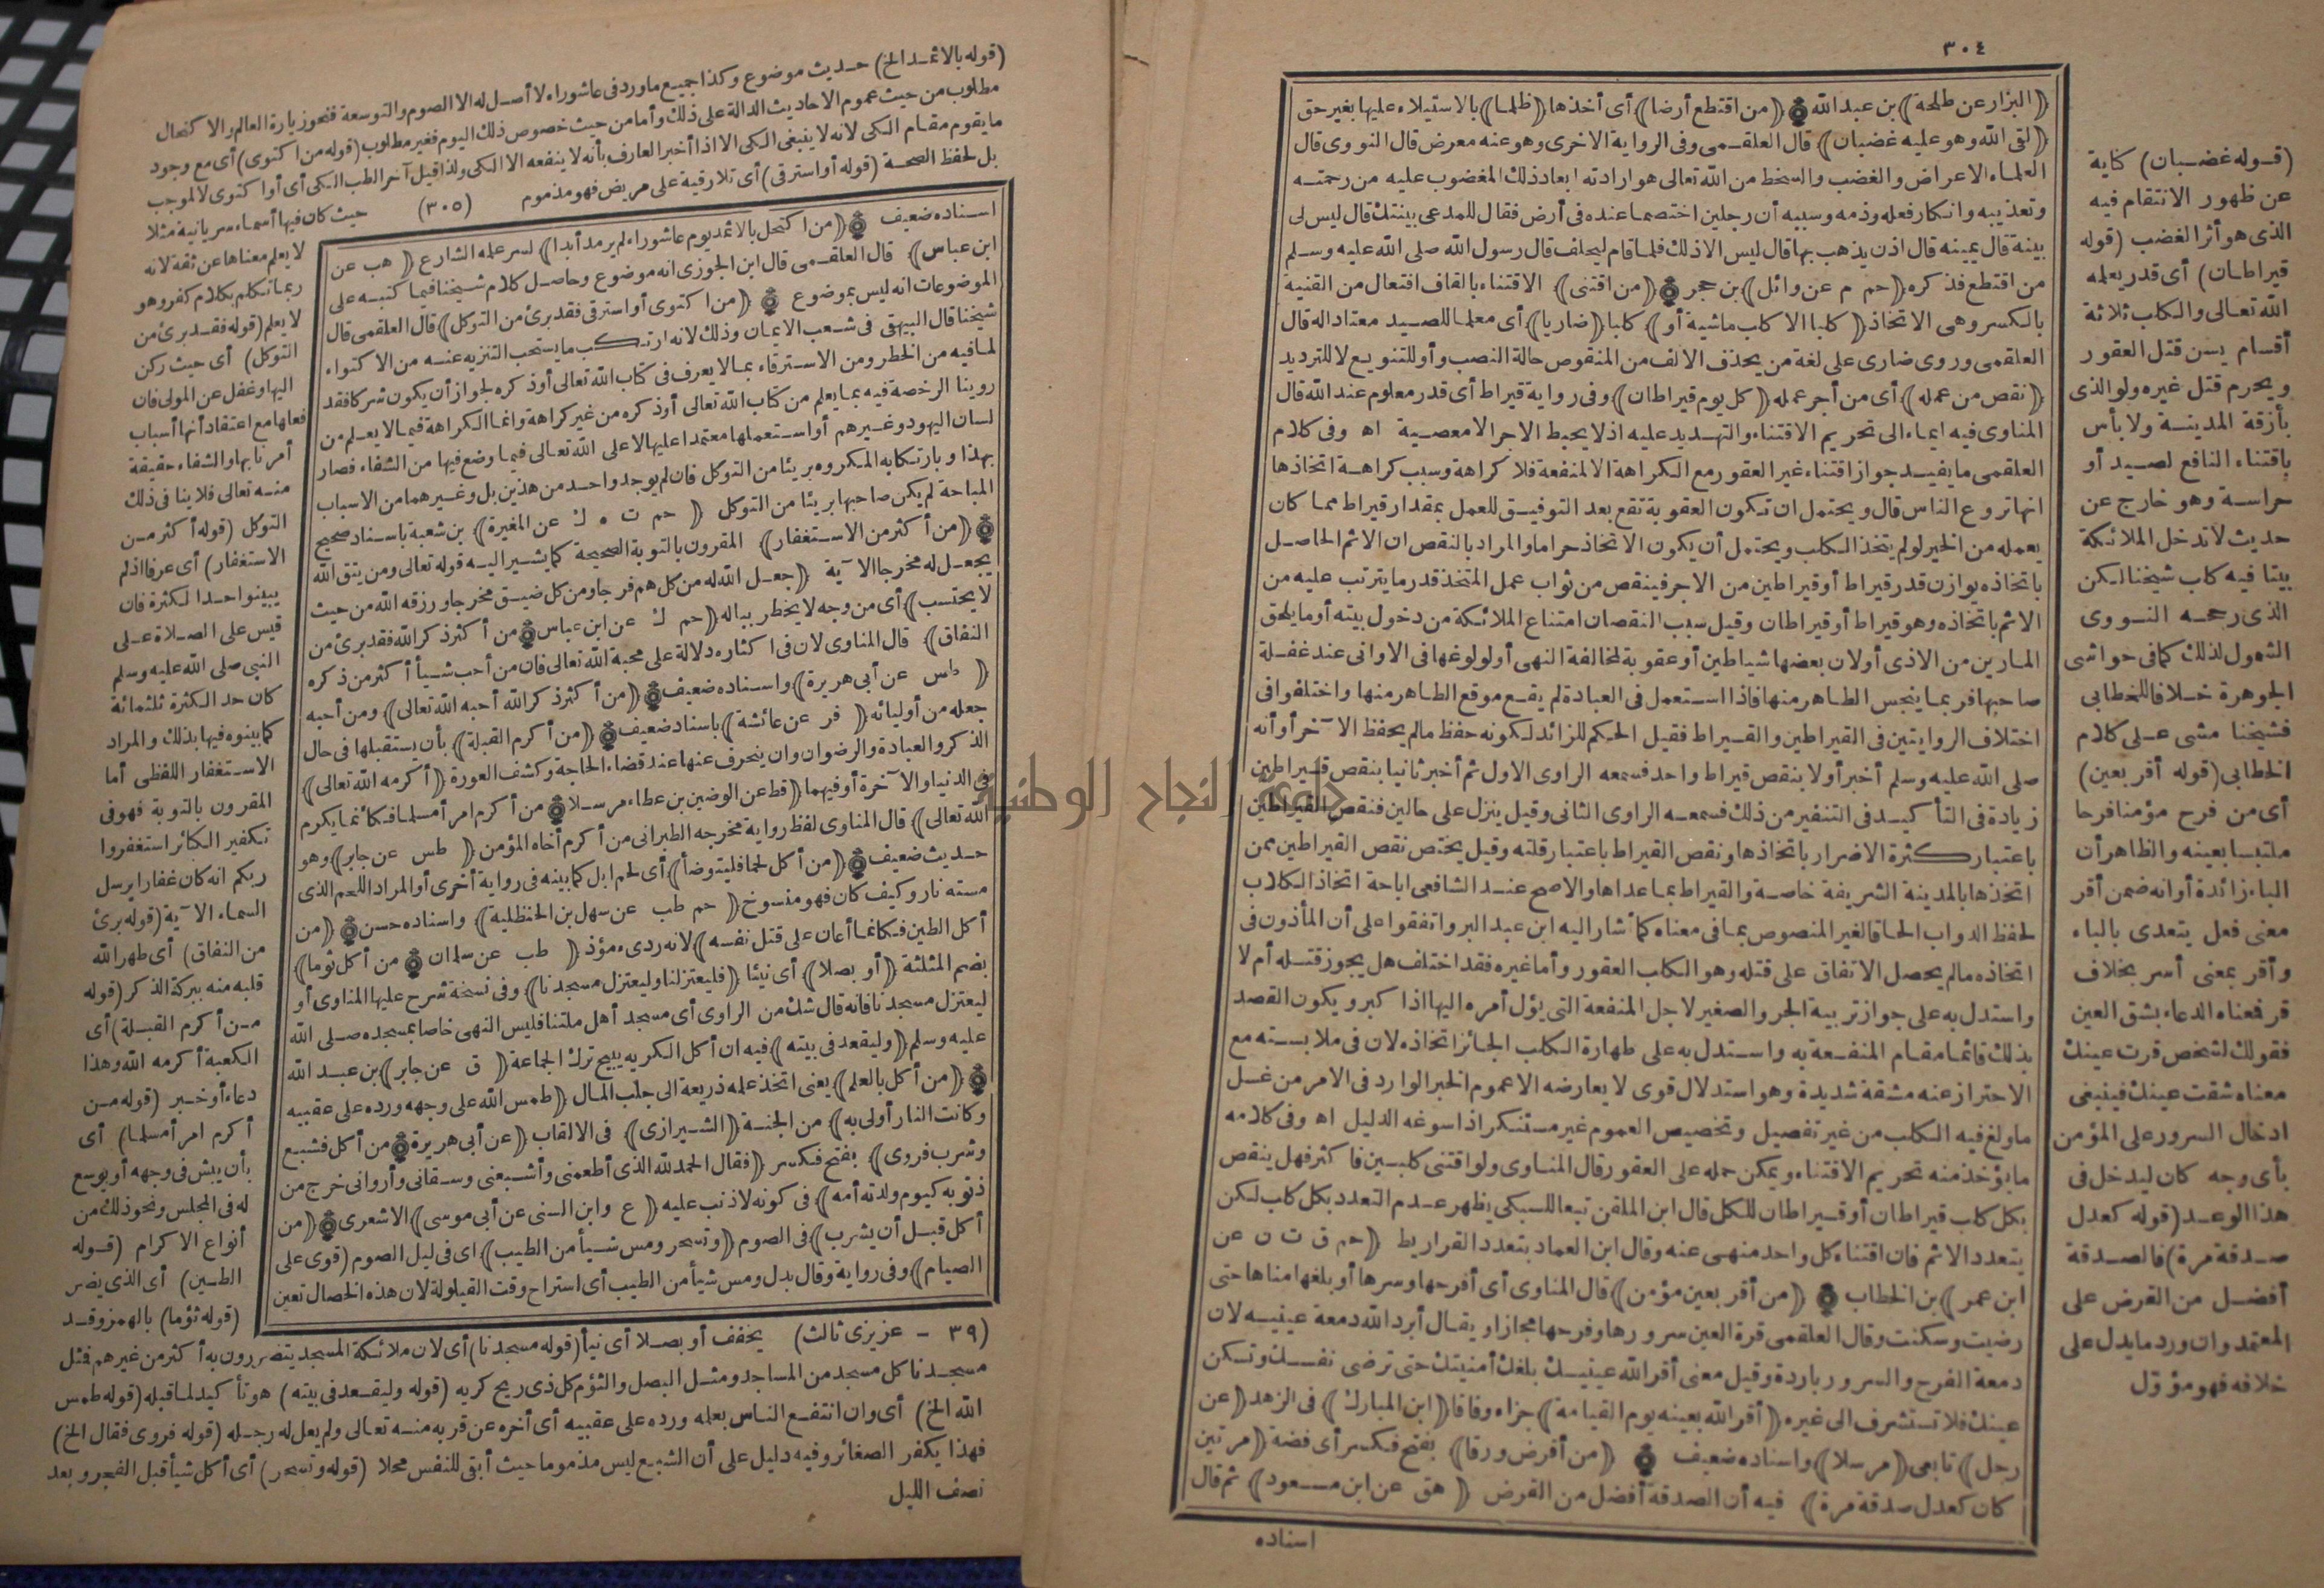 ٣٠٤
﴿البزار عن طلحة﴾ بن عبد الله ﴿من اقتطع أرضا﴾ أى أخذها ﴿ظلما﴾ بالاستيلاء عليها بغير حق
﴿لقى الله وهو عليه غضبان﴾ قال العلقمى وفى الرواية الاخرى وهو عنه معرض قال النووى قال
العلماء الاعراض والغضب والسخط من الله تعالى هو ارادته ابعاد ذلك المغضوب عليه من رحمته
وتعذيبه وانكار فعله وذمه وسببه أن رجلين اختصما عنده فى أرض فقال للمدعى بينتك قال ليس لى
بينة قال يمينه قال اذن يذهب بها قال ليس الا ذلك فلما قام ليحلف قال رسول الله صلى الله عليه وسلم
من اقتطع فذكره ﴿حم م عن وائل﴾ بن حجر ﴿من اقتنى﴾ الاقتناء بالقاف افتعال من القنية
بالكسر وهى الاتخاذ ﴿كلبا الا كلب ماشية أو﴾ كلبا ﴿ضاريا﴾ أى معلما للصيد معتادا له قال
العلقمى وروى ضارى على لغة من يحذف الالف من المنقوص حالة النصب وأو للتنويع لا للترديد
﴿نقص من عمله﴾ أى من أجر عمله ﴿كل يوم قيراطان﴾ وفى رواية قيراط أى قدر معلوم عند الله قال
المناوى فيه ايماء الى تحريم الاقتناء والتهديد عليه اذ لا يحبط الاجر الا معصية اه وفى كلام
العلقمى ما يفيد جواز اقتناء غير العقور مع الكراهة الا لمنفعة فلا كراهة وسبب كراهة اتخاذها
انها تروع الناس قال ويحتمل ان تكون العقوبة تقع بعد التوفيق للعمل بمقدار قيراط مما كان
يعمله من الخير لو لم يتخذ الكلب ويحتمل أن يكون الاتخاذ حراما والمراد بالنقص ان الاثم الحاصل
باتخاذه يوازن قدر قيراط أو قيراطين من الاجر فينقص من ثواب عمل المتخذ قدر ما يترتب عليه من
الاثم باتخاذه وهو قيراط أو قيراطان وقيل سبب النقصان امتناع الملائكة من دخول بيته أو ما يلحق
المارين من الاذى أو لان بعضها شياطين أو عقوبة لمخالفة النهى أو لولوغها فى الاوانى عند غفلة
صاحبها فربما ينجس الطاهر منها فاذا استعمل فى العبادة لم يقع موقع الطاهر منها واختلفوا فى
اختلاف الروايتين فى القيراطين والقيراط فقيل الحكم للزائد لكونه حفظ مالم يحفظ الآخر أو أنه
صلى الله عليه وسلم أخبر أولا بنقص قيراط واحد فسمعه الراوى الاول ثم أخبر ثانيا بنقص قيراطين
زيادة فى التأكيد فى التنفير من ذلك فسمعه الراوى الثانى وقيل ينزل على حالين فنقص القيراطين
باعتبار كثرة الاضرار باتخاذها ونقص القيراط باعتبار قلته وقيل يختص نقص القيراطين ممن
اتخذها بالمدينة الشريفة خاصة والقيراط بما عداها والاصح عند الشافعى اباحة اتخاذ الكلاب
لحفظ الدواب الحاقا لغير المنصوص بما فى معناه كما أشار اليه ابن عبد البر واتفقوا على أن المأذون فى
اتخاذه مالم يحصل الاتفاق على قتله وهو الكلب العقور وأما غيره فقد اختلف هل يجوز قتله أم لا
واستدل به على جواز تربية الجرو الصغير لاجل المنفعة التى يؤل أمره اليها اذا كبر ويكون القصد
بذلك قائما مقام المنفعة به واستدل به على طهارة الكلب الجائز اتخاذه لان فى ملابسته مع
الاحتراز عنه مشقة شديدة وهو استدلال قوى لا يعارضه الا عموم الخبر الوارد فى الامر من غسل
ما ولغ فيه الكلب من غير تفصيل وتخصيص العموم غير مستنكر اذا سوغه الدليل اه وفى كلامه
ما يؤخذ منه تحريم الاقتناء ويمكن حمله على العقور قال المناوى ولو اقتنى كلبين فاكثر فهل ينقص
بكل كلب قيراطان أو قيراطان للكل قال ابن الملقن تبعا للسبكى يظهر عدم التعدد بكل كلب لكن
يتعدد الاثم فان اقتناء كل واحد منهى عنه وقال ابن العماد بتعدد القراريط ﴿حم ق ت ن عن
ابن عمر﴾ بن الخطاب ﴿من أقر بعين مؤمن﴾ قال المناوى أى أفرحها وسرها أو بلغها مناها حتى
رضيت وسكنت وقال العلقمى قرة العين سرورها وفرحها مجازا ويقال أبرد الله دمعة عينيه لان
دمعة الفرح والسرور باردة وقيل معنى أقر الله عينيك بلغك أمنيتك حتى ترضى نفسك وتسكن
عينك فلا تستشرف الى غيره ﴿أقر الله بعينه يوم القيامة﴾ جزاء وفاقا ﴿ابن المبارك﴾ فى الزهد ﴿عن
رجل﴾ تابعى ﴿مرسلا﴾ واسناده ضعيف ﴿من أقرض ورقا﴾ بفتح فكسر أى فضة ﴿مرتين
كان كعدل صدقة مرة﴾ فيه أن الصدقة أفضل من القرض ﴿هق عن ابن مسعود﴾ ثم قال
اسناده
(قوله غضبان) كناية
عن ظهور الانتقام فيه
الذى هو أثر الغضب (قوله
قيراطان) أى قدر يعلمه
الله تعالى والكلب ثلاثة
أقسام يسن قتل العقور
ويحرم قتل غيره ولو الذى
بأزقة المدينة ولا بأس
باقتناء النافع لصيد أو
حراسة وهو خارج عن
حديث لا تدخل الملائكة
بيتا فيه كلب شيخنا لكن
الذى رجحه النووى
الشمول لذلك كما فى حواشى
الجوهرة خلافا للخطابى
فشيخنا مشى على كلام
الخطابى (قوله أقر بعين)
أى من فرح مؤمنا فرحا
ملتبسا بعينه والظاهر أن
الباء زائدة أو انه ضمن أقر
معنى فعل يتعدى بالباء
وأقر بمعنى أسر بخلاف
قر فمعناه الدعاء بشق العين
فقولك لشخص قرت عينك
معناه شقت عينك فينبغى
ادخال السرور على المؤمن
بأى وجه كان ليدخل فى
هذا الوعد (قوله كعدل
صدقة مرة) فالصدقة
أفضل من القرض على
المعتمد وان ورد ما يدل على
خلافه فهو مؤول
(قوله بالاثمد الخ) حديث موضوع وكذا جميع ما ورد فى عاشوراء لا أصل له الا الصوم والتوسعة فنحو زيارة العالم والاكتحال
مطلوب من حيث عموم الاحاديث الدالة على ذلك وأما من حيث خصوص ذلك اليوم فغير مطلوب (قوله من اكتوى) أى مع وجود
ما يقوم مقام الكى لانه لا ينبغى الكى الا اذا أخبر العارف بأنه لا ينفعه الا الكى ولذا قيل آخر الطب الكى أى أو اكتوى لا لموجب
بل لحفظ الصحة (قوله أو استرقى) أى تلا رقية على مريض فهو مذموم (٣٠٥) حيث كان فيها أسماء سريانية مثلا
لا يعلم معناها عن ثقة لانه
ربما تكلم بكلام كفر وهو
لا يعلم (قوله فقد برئ من
التوكل) أى حيث ركن
اليها وغفل عن المولى فان
فعلها مع اعتقاد أنها أسباب
أمرنا بها والشفاء حقيقة
منه تعالى فلا ينافى ذلك
التوكل (قوله أكثر من
الاستغفار) أى عرفا اذ لم
يبينوا حدا لكثرة فان
قيس على الصلاة على
النبى صلى الله عليه وسلم
كان حد الكثرة ثلثمائة
كما بينوه فيها بذلك والمراد
الاستغفار اللفظى أما
المقرون بالتوبة فهو فى
تكفير الكبائر استغفروا
ربكم انه كان غفارا يرسل
السماء الآية (قوله برئ
من النفاق) أى طهر الله
قلبه منه ببركة الذكر (قوله
من أكرم القبلة) أى
الكعبة أكرمه الله وهذا
دعاء أو خبر (قوله من
أكرم امرأ مسلما) أى
بأن يبش فى وجهه أو يوسع
له فى المجلس ونحو ذلك من
أنواع الاكرام (قوله
الطين) أى الذى يضر
(قوله ثؤما) بالهمز وقد
اسناده ضعيف ﴿من اكتحل بالاثمد يوم عاشوراء لم يرمد أبدا﴾ لسر علمه الشارع ﴿هب عن
ابن عباس﴾ قال العلقمى قال ابن الجوزى انه موضوع وحاصل كلام شيخنا فيما كتبه على
الموضوعات انه ليس بموضوع ﴿من اكتوى أو استرقى فقد برئ من التوكل﴾ قال العلقمى قال
شيخنا قال البيهقى فى شعب الايمان وذلك لانه ارتكب ما يستحب التنزيه عنه من الاكتواء
لما فيه من الخطر ومن الاسترقاء بما لا يعرف فى كتاب الله تعالى أو ذكره لجواز أن يكون شركا فقد
روينا الرخصة فيه بما يعلم من كتاب الله تعالى أو ذكره من غير كراهة وانما الكراهة فيما لا يعلم من
لسان اليهود وغيرهم أو استعملها معتمدا عليها لا على الله تعالى فيما وضع فيها من الشفاء فصار
بهذا وبارتكابه المكروه بريئا من التوكل فان لم يوجد واحد من هذين بل وغيرهما من الاسباب
المباحة لم يكن صاحبها بريئا من التوكل ﴿حم ت ه ك عن المغيرة﴾ بن شعبة باسناد صحيح
﴿من أكثر من الاستغفار﴾ المقرون بالتوبة الصحيحة كما يشير اليه قوله تعالى ومن يتق الله
يجعل له مخرجا الآية ﴿جعل الله له من كل هم فرجا ومن كل ضيق مخرجا ورزقه الله من حيث
لا يحتسب﴾ أى من وجه لا يخطر بباله ﴿حم ك عن ابن عباس﴾ ﴿من أكثر ذكر الله فقد برئ من
النفاق﴾ قال المناوى لان فى اكثاره دلالة على محبة الله تعالى فان من أحب شيأ أكثر من ذكره
﴿طس عن أبى هريرة﴾ واسناده ضعيف ﴿من أكثر ذكر الله أحبه الله تعالى﴾ ومن أحبه
جعله من أوليائه ﴿فر عن عائشة﴾ باسناد ضعيف ﴿من أكرم القبلة﴾ بأن يستقبلها فى حال
الذكر والعبادة والرضوان وان ينحرف عنها عند قضاء الحاجة وكشف العورة ﴿أكرمه الله تعالى﴾
فى الدنيا والآخرة أو فيهما ﴿قط عن الوضين بن عطاء مرسلا﴾ ﴿من أكرم امرأ مسلما فكأنما يكرم
الله تعالى﴾ قال المناوى لفظ رواية مخرجه الطبرانى من أكرم أخاه المؤمن ﴿طس عن جابر﴾ وهو
حديث ضعيف ﴿من أكل لحما فليتوضأ﴾ أى لحم ابل كما بينه فى رواية أخرى أو المراد اللحم الذى
مسته نار وكيف كان فهو منسوخ ﴿حم طب عن سهل بن الحنظلية﴾ واسناده حسن ﴿من
أكل الطين فكأنما أعان على قتل نفسه﴾ لانه ردىء مؤذ ﴿طب عن سلمان﴾ ﴿من أكل ثوما﴾
بضم المثلثة ﴿أو بصلا﴾ أى نيئا ﴿فليعتزلنا وليعتزل مسجدنا﴾ وفى نسخة شرح عليها المناوى أو
ليعتزل مسجدنا فانه قال شك من الراوى أى مسجد أهل ملتنا فليس النهى خاصا بمسجده صلى الله
عليه وسلم ﴿وليقعد فى بيته﴾ فيه ان أكل الكريه يبيح ترك الجماعة ﴿ق عن جابر﴾ بن عبد الله
﴿من أكل بالعلم﴾ يعنى اتخذ علمه ذريعة الى جلب المال ﴿طمس الله على وجهه ورده على عقبيه
وكانت النار أولى به﴾ من الجنة ﴿الشيرازى﴾ فى الالقاب ﴿عن أبى هريرة﴾ ﴿من أكل فشبع
وشرب فروى﴾ بفتح فكسر ﴿فقال الحمد لله الذى أطعمنى وأشبعنى وسقانى وأروانى خرج من
ذنوبه كيوم ولدته أمه﴾ فى كونه لا ذنب عليه ﴿ع وابن السنى عن أبى موسى﴾ الاشعرى ﴿من
أكل قبل أن يشرب﴾ فى الصوم ﴿وتسحر ومس شيأ من الطيب﴾ اى فى ليل الصوم ﴿قوى على
الصيام﴾ وفى رواية وقال بدل ومس شيأ من الطيب أى استراح وقت القيلولة لان هذه الخصال تعين
(٣٩ - عزيزى ثالث) يخفف أو بصلا أى نيأ (قوله مسجدنا) أى لان ملائكة المسجد يتضررون به أكثر من غيرهم فمثل
مسجدنا كل مسجد من المساجد ومثل البصل والثؤم كل ذى ريح كريه (قوله وليقعد فى بيته) هو تأكيد لما قبله (قوله طمس
الله الخ) أى وان انتفع الناس بعلمه ورده على عقبيه أى أخره عن قربه منه تعالى ولم يعل له رجله (قوله فروى فقال الخ)
فهذا يكفر الصغائر وفيه دليل على أن الشبع ليس مذموما حيث أبقى للنفس محلا (قوله وتسحر) أى أكل شيأ قبل الفجر وبعد
نصف الليل
جامعة النجاح الوطنية